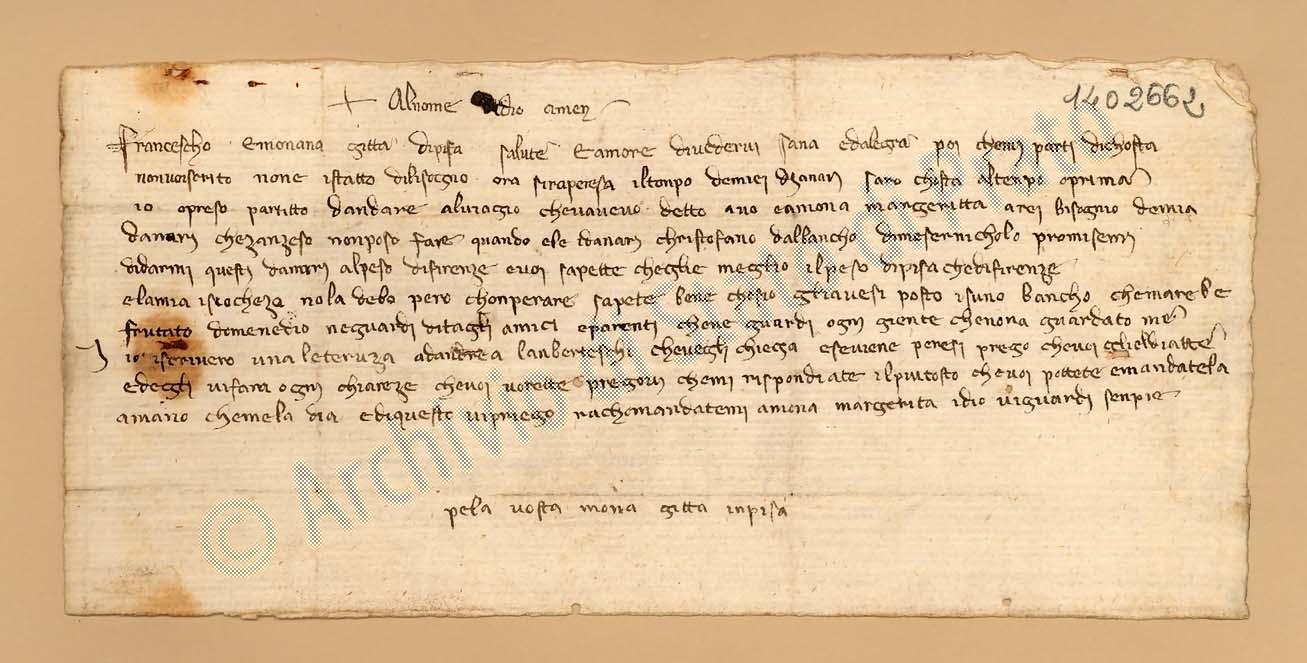 + Al nome di dio amen
1402662
Francescho e monana gitta di pisa salute e amore di vedervi sana ed alegra poi che mi parti di chosta
non vo iscrito none istatto di bisognio ora si rapresa il tenpo de miei danari saro chosta al tenpo o prima
io o preso partitto d andare al viagio che v avevo detto a vo e a mona margeritta arei bisognio de mia
danari che sanza eso non poso fare quando ebe danari christofano dal bancho di meser nicholo promisemi
di darmi questi danari al peso di firenze e voi sapette che gli e meglio il peso di pisa che di firenze
e la mia isciocheza no la debo pero chonperare sapete bene ches io gli avesi posto i su no bancho che m arebe
frutato domenedio ne guardi di tagli amici e parenti che ne guardi ogni giente che non a guardato me
io iscrivero una leteruza ad andrea lanberteschi che v egli chiega e se viene per esi prego che voi gliel diatte
ed egli vi fara ogni chiareze che voi vorette pregovi che mi rispondiate il piu tosto che voi pottete e mandatela
a mano che me la dia e di questo vi priego rachomandatemi a mona margerita idio vi guardi senpre
pe la vosta mona gitta in pisa
© Archivio di Stato di Prato